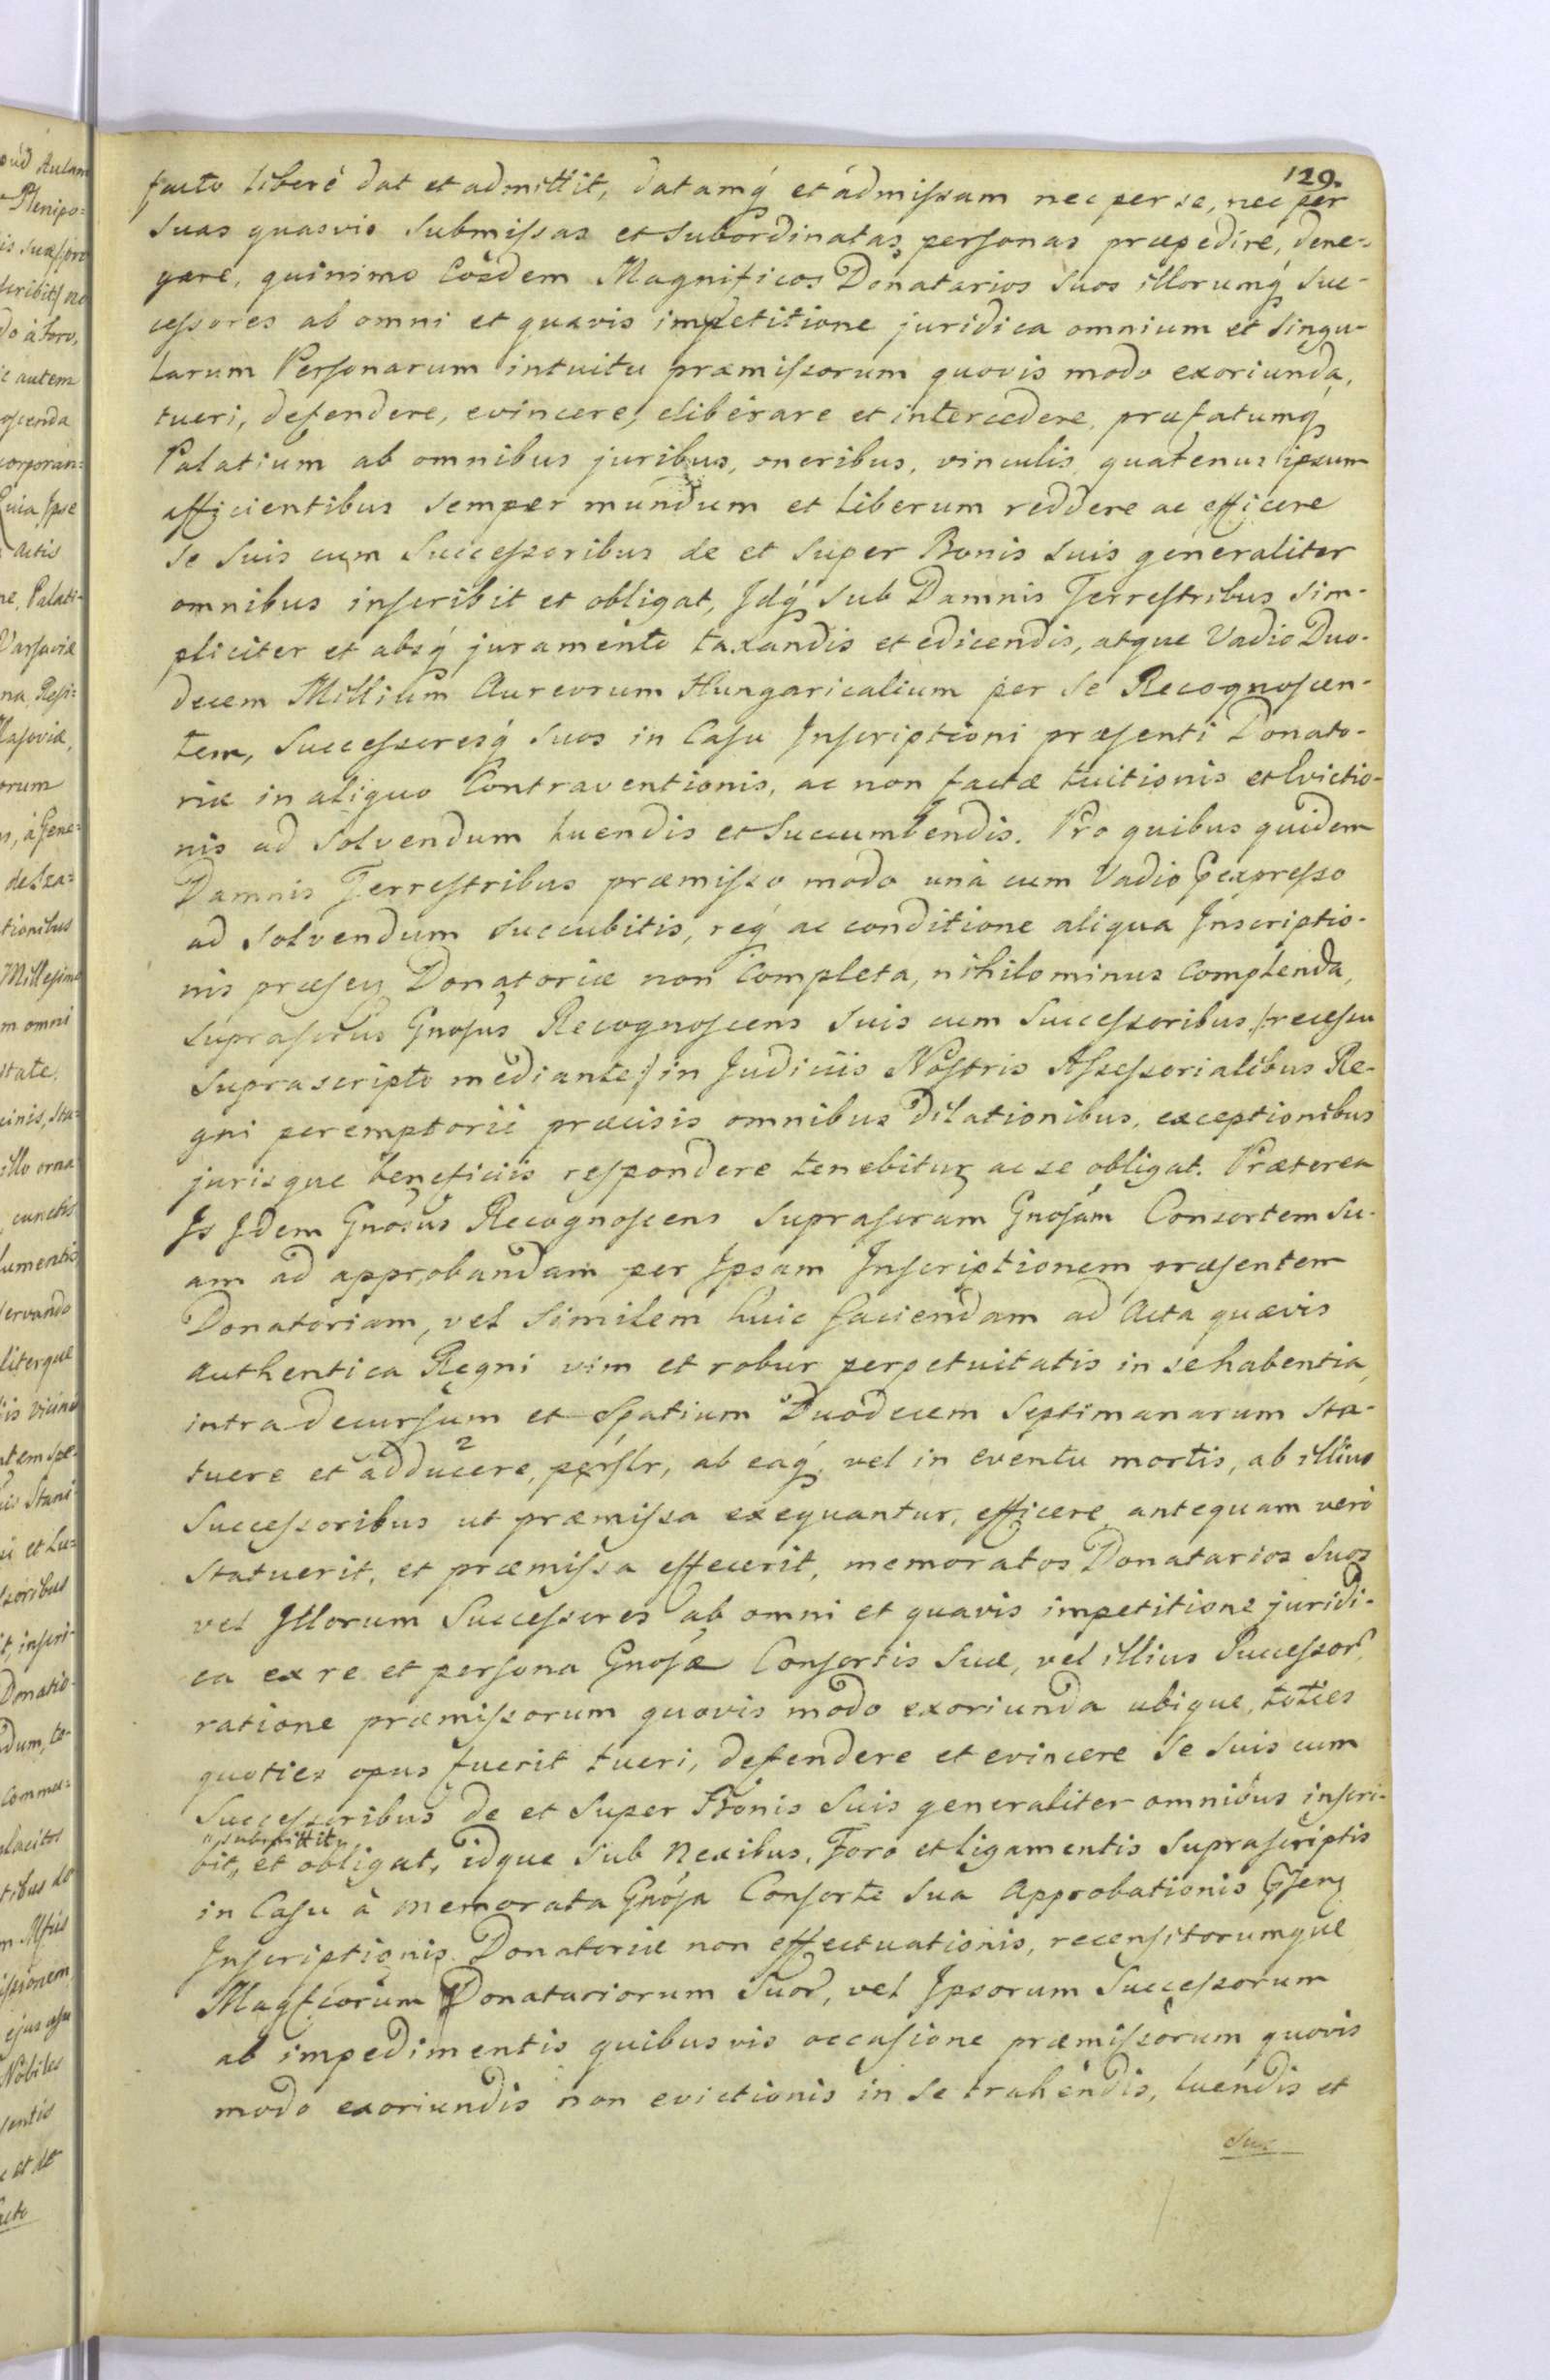 129.
facto liberè dat et admittit, datamq́ et admissam nec per se, nec per
suas quasvis submissas et subordinatas personas præpedire, dene-
gare, quinimo Eosdem Magnificos Donatarios suos illorumq́ suc-
cessores ab omni et quavis impetitione juridica omnium et singu-
larum Personarum intuitu præmissorum quovis modo exoriunda,
tueri, defendere, evincere, eliberare et intercedere, præfatumq́
Palatium ab omnibus juribus, oneribus, vinculis quatenus ipsum
afficientibus semper mundum et liberum reddere ac efficere
se suis cum Successoribus de et super Bonis suis generaliter
omnibus inscribit et obligat, Idq́ sub Damnis Terrestribus sim-
pliciter et absq́ juramento taxandis et edicendis, atque Vadio Duo-
decem Millium Aureorum Hungaricalium per se Recognoscen-
tem, Successoresq́ suos in Casu Inscriptioni præsenti Donato-
riæ in aliquo Contraventionis, ac non factæ tuitionis et Evictio-
nis ad solvendum luendis et succumbendis. Pro quibus quidem
Damnis Terrestribus præmisso modo unà cum Vadio p̃expresso
ad solvendum succubitis, req́ ac conditione aliqua Inscriptio-
nis præseñ Donatoriæ non completa, nihilominus complenda,
suprascrtus Gnosus Recognoscens suis cum Successoribus /:recessu
suprascripto mediante:/ in Judiciis Nostris Assessorialibus Re-
gni peremptorii præcisis omnibus Dilationibus, exceptionibus
jurisque beneficiis respondere tenebitur ac se obligat. Præterea
Is Idem Gnosus Recognoscens suprascram Gnosam Consortem su-
am ad approbandam per Ipsam Inscriptionem præsentem
Donatoriam, vel similem huic faciendam ad Acta quævis
authentica Regni vim et robur perpetuitatis in se habentia,
intra decursum et spatium Duodecem Septimanarum sta-
tuere et adducere, persłr, ab eaq́, vel in eventu mortis, ab illius
Successoribus ut præmissa exequantur, efficere, antequam verò
statuerit, et præmissa effecerit, memoratos Donatarios suos
vel Illorum Successores ab omni et quavis impetitione juridi-
ca ex re et persona Gnosæ Consortis suæ, vel illius Successor̃,
ratione præmissorum quovis modo exoriunda ubique, toties
quoties opus fuerit tueri, defendere et evincere se suis cum
Successoribus de et super Bonis suis generaliter omnibus inscri-
"submittit"
bit,, et obligat, idque sub nexibus, Foro et ligamentis suprascriptis
in Casu à memorata Gnosa Consorte sua Approbationis p̃señ
Inscriptionis Donatoriæ non effectuationis, recensitorumque
Magfcorum Donatariorum suor̃, vel Ipsorum Successorum
ab impedimentis quibusvis occasione præmissorum quovis
modo exoriundis non evictionis in se trahendis, luendis et
suc-